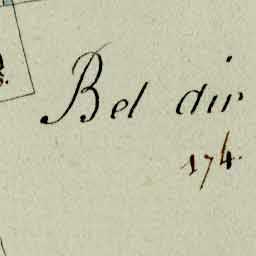 Bel dir
174.